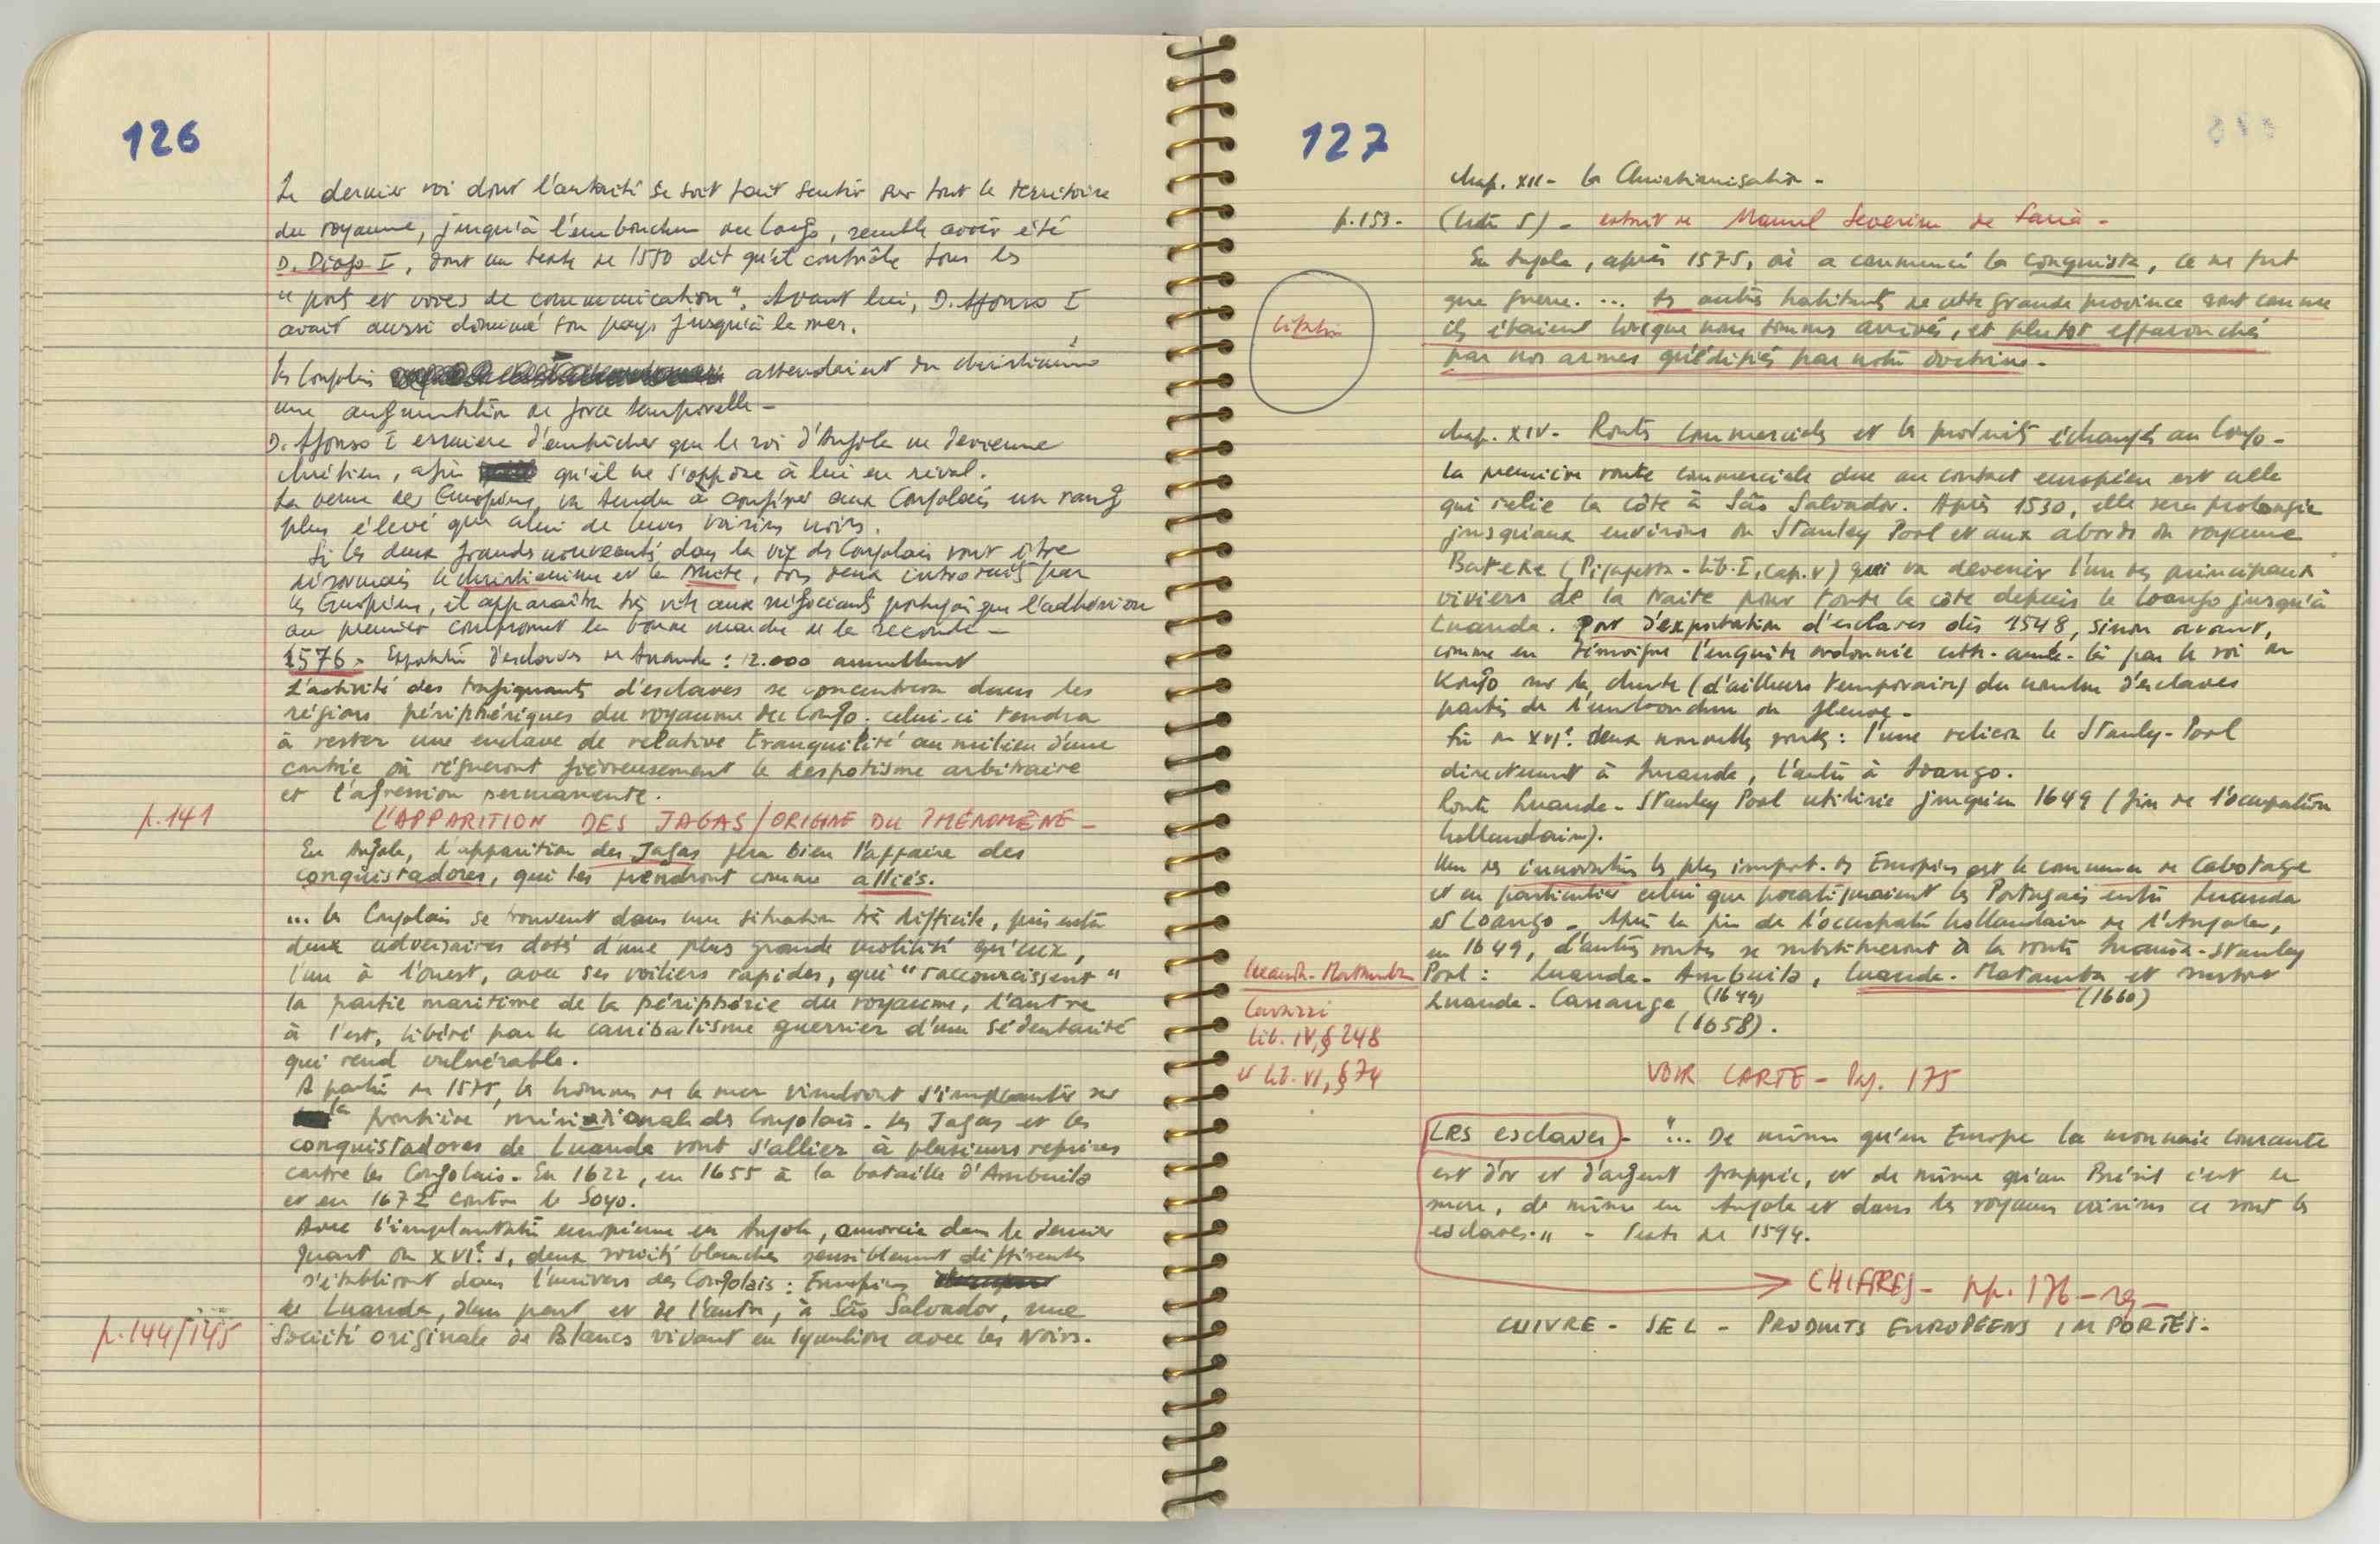 126
Le dernier roi dont l'autorité se soit fait sentir sur tout le territoire
du royaume, jusqu'à l'embouchure du Congo, semble avoir été
D. Diogo I, dont un texte de 1550 dit qu'il contrôle tous les
"ports et voies de communication". Avant lui, D. Afonso I
avait aussi dominé son pays jusqu'à la mer.
Les Congolais attendaient du christianisme
une augmentation de force temporelle -
D. Afonso I essaiera d'empêcher que le roi d'Angola ne devienne
chrétien, afin qu'il ne s'oppose à lui en rival.
La venue des Européens va tendre à conférer aux Congolais un rang
plus élevé que celui de leurs voisins noirs.
Si les deux grandes nouveautés dans la vie des Congolais vont être
désormais le christianisme et la traite, tous deux introduits par
les Européens, il apparaîtra très vite aux négociants portugais que l'adhésion
au premier compromet la bonne marche de la seconde -
1576 - Exportation d'esclaves de Luanda : 12.000 annuellement
L'activité des trafiquants d'esclaves se concentrera dans les
régions périphériques du royaume du Congo. celui-ci tendra
à rester une enclave de relative tranquilité au milieu d'une
contrée où régneront fiévreusement le despotisme arbitraire
et l'agression permanente.
p.141 L'APPARITION DES JAGAS/ORIGINE DU PHÉNOMÈNE -
En Angola, l'apparition des Jagas fera bien l'affaire des
conquistadores, qui les prendront comme alliés.
... les Congolais se trouvent dans une situation très difficile, pris entre
deux adversaires dotés d'une plus grande mobilité qu'eux,
l'un à l'ouest, avec ses voiliers rapides, qui "raccourcissent"
la partie maritime de la périphérie du royaume, l'autre
à l'est, libéré par le cannibalisme guerrier d'une sédentarité
qui rend vulnérable.
A partir de 1575, les hommes de la mer viendront s'implanter sur
la frontière méridionale des Congolais. Les Jagas et les
conquistadores de Luanda vont s'allier à plusieurs reprises
contre les Congolais. En 1622, en 1655 à la bataille d'Ambuila
et en 1672 contre le Soyo.
Avec l'implantation européenne en Angola, amorcée dans le dernier
quart du XVIe s, deux sociétés blanches sensiblement différentes
s'établiront dans l'univers des Congolais : Européens
de Luanda, d'une part et de l'autre, à São Salvador, une
p.144/145 Société originale de Blancs vivant en symbiose avec les Noirs.
127
chap. XII - la Christianisation -
p.153 - (note 5) - extrait de Manuel Severim de Faria -
En Angola, après 1575, où a commencé la conquista, ce ne fut
que guerre. ... Les autres habitants de cette grande province sont comme
citation ils étaient lorsque nous sommes arrivés, et plutôt effarouchés
par nos armes qu'édifiés par notre doctrine -
chap. XIV - Routes commerciales et les produits échangés au Congo -
La première route commerciale due au contact européen est celle
qui relie la côte à São Salvador. Après 1530, elle sera prolongée
jusqu'aux environs du Stanley Pool et aux abords du royaume
Bateke (Pigafetta - Lib. I, cap. V) qui va devenir l'un des principaux
viviers de la traite pour toute la côte depuis le Loango jusqu'à
Luanda. Port d'exportation d'esclaves dès 1548, sinon avant,
comme en témoigne l'enquête ordonnée cette-année-là par le roi du
Kongo sur la chute (d'ailleurs temporaire) du nombre d'esclaves
partis de l'embouchure du fleuve -
Fin du XVIe. deux nouvelles routes : l'une reliera le Stanley-Pool
directement à Luanda, l'autre à Loango.
Route Luanda - Stanley Pool utilisée jusqu'en 1649 (fin de l'occupation
hollandaise).
Une des innovations les plus import. des Européens est le commerce de Cabotage
et en particulier celui que pratiquaient les Portugais entre Luanda
et Loango - Après la fin de l'occupation hollandaise de l'Angola,
en 1649, d'autres routes se substitueront à la route Luanda-Stanley
Pool : Luanda - Ambuila, Luanda - Matamba et surtout
Luanda - Cassange (1649) (1660)
(1658).
Luanda - Matamba
Cavazzi
Lib. IV, § 248
et Lib. VI, § 74
VOIR CARTE - Pag. 175
Les esclaves - "... De même qu'en Europe la monnaie courante
est d'or et d'argent frappée, et de même qu'au Brésil c'est le
sucre, de même en Angola et dans les royaumes voisins ce sont les
esclaves." - Texte de 1594.
CHIFFRES - pp. 176 - sq -
CUIVRE - SEL - PRODUITS EUROPEENS IMPORTÉS -